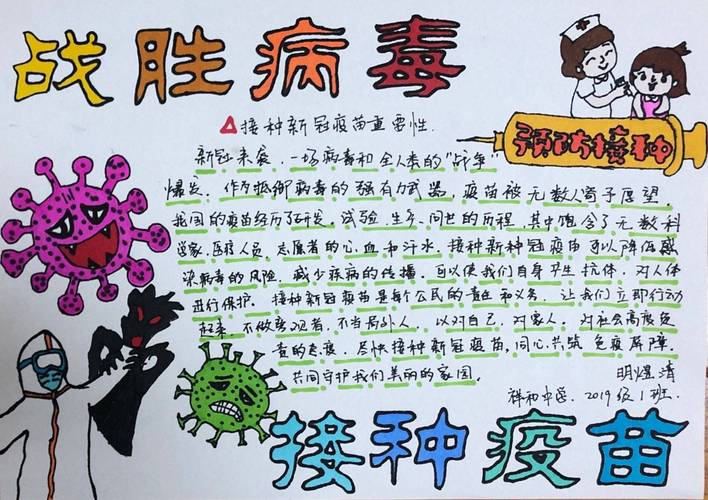 战胜病毒
预防接种
接种新冠疫苗重要性.
新冠来袭，一场病毒和全人类的“战争”
爆发。作为抵御病毒的强有力武器，疫苗被无数人寄予愿望。
我国的疫苗经历了研发、试验、生产、问世的历程，其中饱含了无数科
学家、医疗人员、志愿者的心血和汗水。接种新种冠疫苗可以降低感
染病毒的风险，减少疾病的传播，可以使我们自身产生抗体，对人体
进行保护。接种新冠疫苗是每个公民的责任和义务，让我们立即行动
起来，不做旁观者，不当局外人，以对自己、对家人、对社会高度负
责的态度，尽快接种新冠疫苗，同心共筑免疫屏障，
共同守护我们美丽的家园。
明煜清
祥和中学. 2019级1班.
接种疫苗